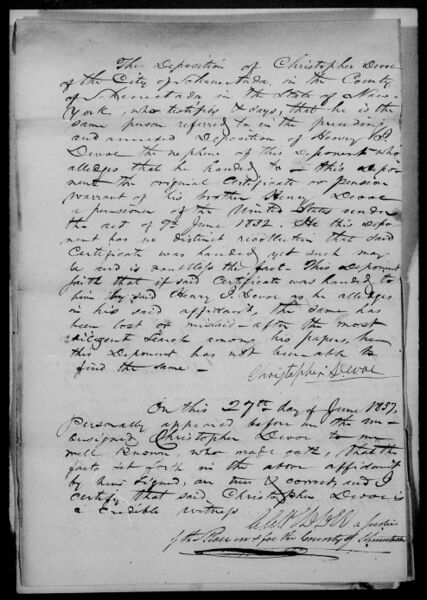 The Deposition of Christopher Devoe
of the City of Schenectada, in the County
of Schenectada in the State of New
York, who testifys & says, that he is the
same person referred to in the preceding
and annexed Deposition of Henry
Devoe the nephew of this Deponent who
alledges that he handed to this Depo
nent the original Certificate or pension
warrant of his brother Henry Devoe
a pensioner of the United States under
the act of 7th June 1832. He this depo
nent has no distinct recollection that said
Certificate was handed yet such may
be and is doubtless the fact - This Deponent
saith that if said Certificate was handed to
him by said Henry I. Devoe as he alledges
in his said affidavit, the same has
been lost or mislaid - after the most
diligent search among his papers, he
this Deponent has not been able to
find the same -
Christopher Devoe
On this 27th day of June 1837,
Personally appeared before me the un-
ersigned Christopher Devoe to me
well known, who made oath, that the
facts set forth in the above affidavit
by him signed, are true & correct, and I
certify that said Christopher Devoe is
a credible witness
a Justice
of the Peace in & for the County of Schenectada